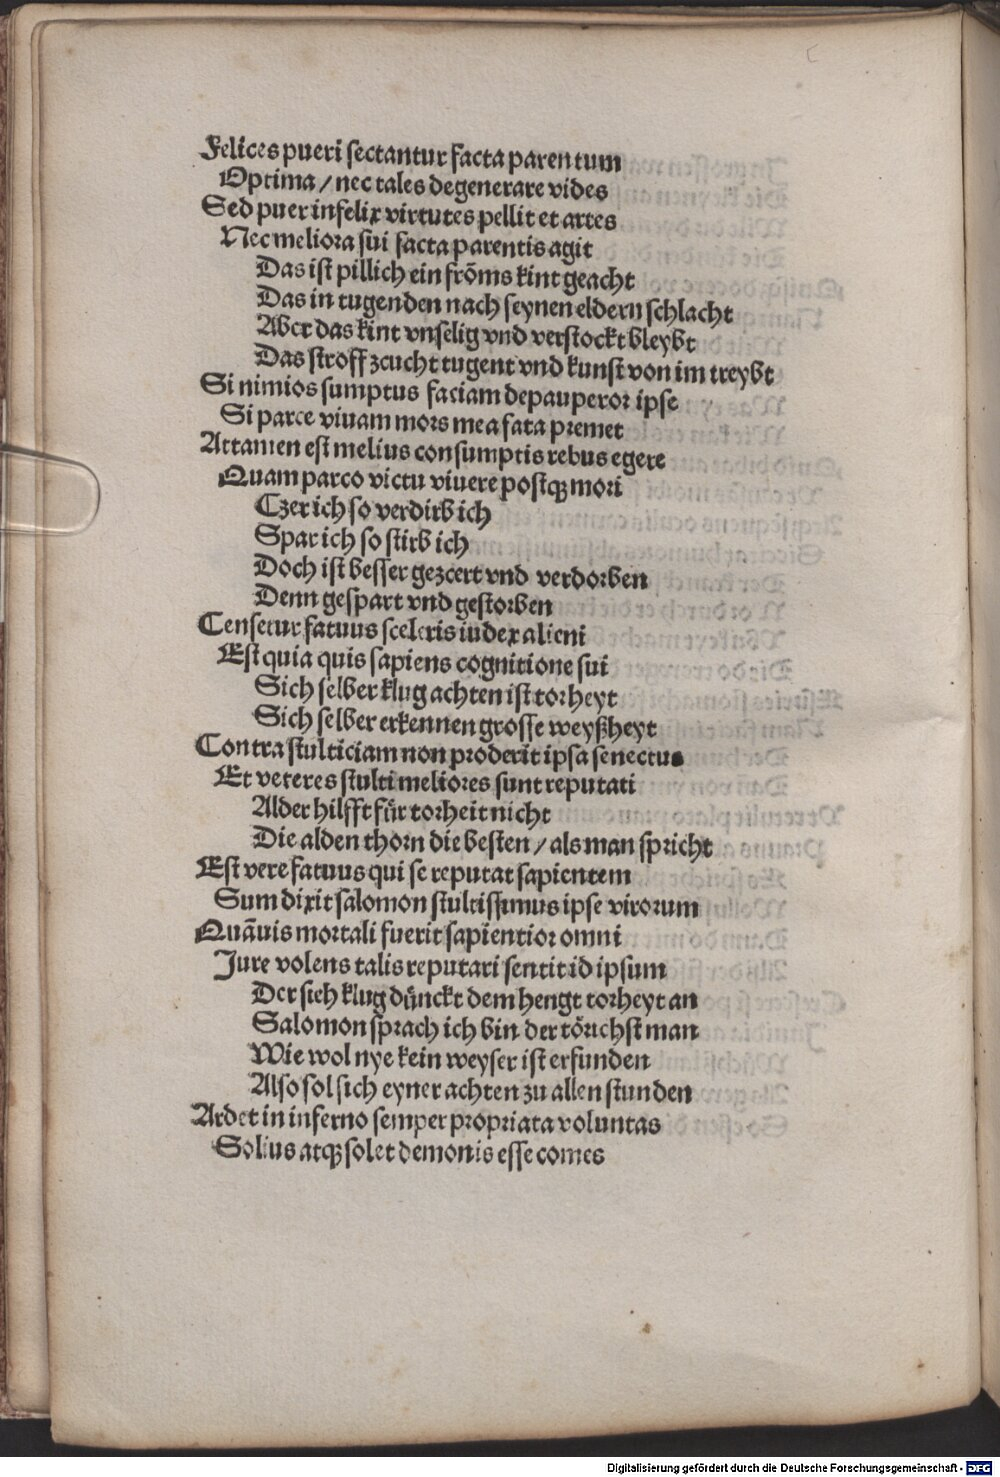 Felices pueri sectantur facta parentum
Optima / nec tales degenerare vides
Sed puer infelix virtutes pellit et artes
Nec meliora sui facta parentis agit
Das ist pillich ein frõms kint geacht
Das in tugenden nach seynen eldern schlacht
Aber das kint vnselig vnd verstockt bleybt
Das stroff zcucht tugent vnd kunst von im treybt
Si nimios sumptus faciam depauperor ipse
Si parce viuam mors mea fata premet
Attamen est melius consumptis rebus egere
Quam parco victu viuere postqꝫ mori
Czer ich so verdirb ich
Spar ich so stirb ich
Doch ist besser gezcert vnd verdorben
Denn gespart vnd gestorben
Censetur fatuus sceleris iudex alieni
Est quia quis sapiens cognitione sui
Sich selber klug achten ist torheyt
Sich selber erkennen grosse weyßheyt
Contra stulticiam non proderit ipsa senectus
Et veteres stulti meliores sunt reputati
Alder hilfft für torheit nicht
Die alden thorn die besten / als man spricht
Est vere fatuus qui se reputat sapientem
Sum dixit salomon stultissimus ipse virorum
Quãuis mortali fuerit sapientior omni
Jure volens talis reputari sentit id ipsum
Der sich klug dünckt dem hengt torheyt an
Salomon sprach ich bin der törichst man
Wie wol nye kein weyser ist erfunden
Also sol sich eyner achten zu allen stunden
Ardet in inferno semper propriata voluntas
Solius atqꝫ solet demonis esse comes
Digitalisierung gefördert durch die Deutsche Forschungsgemeinschaft - DFG